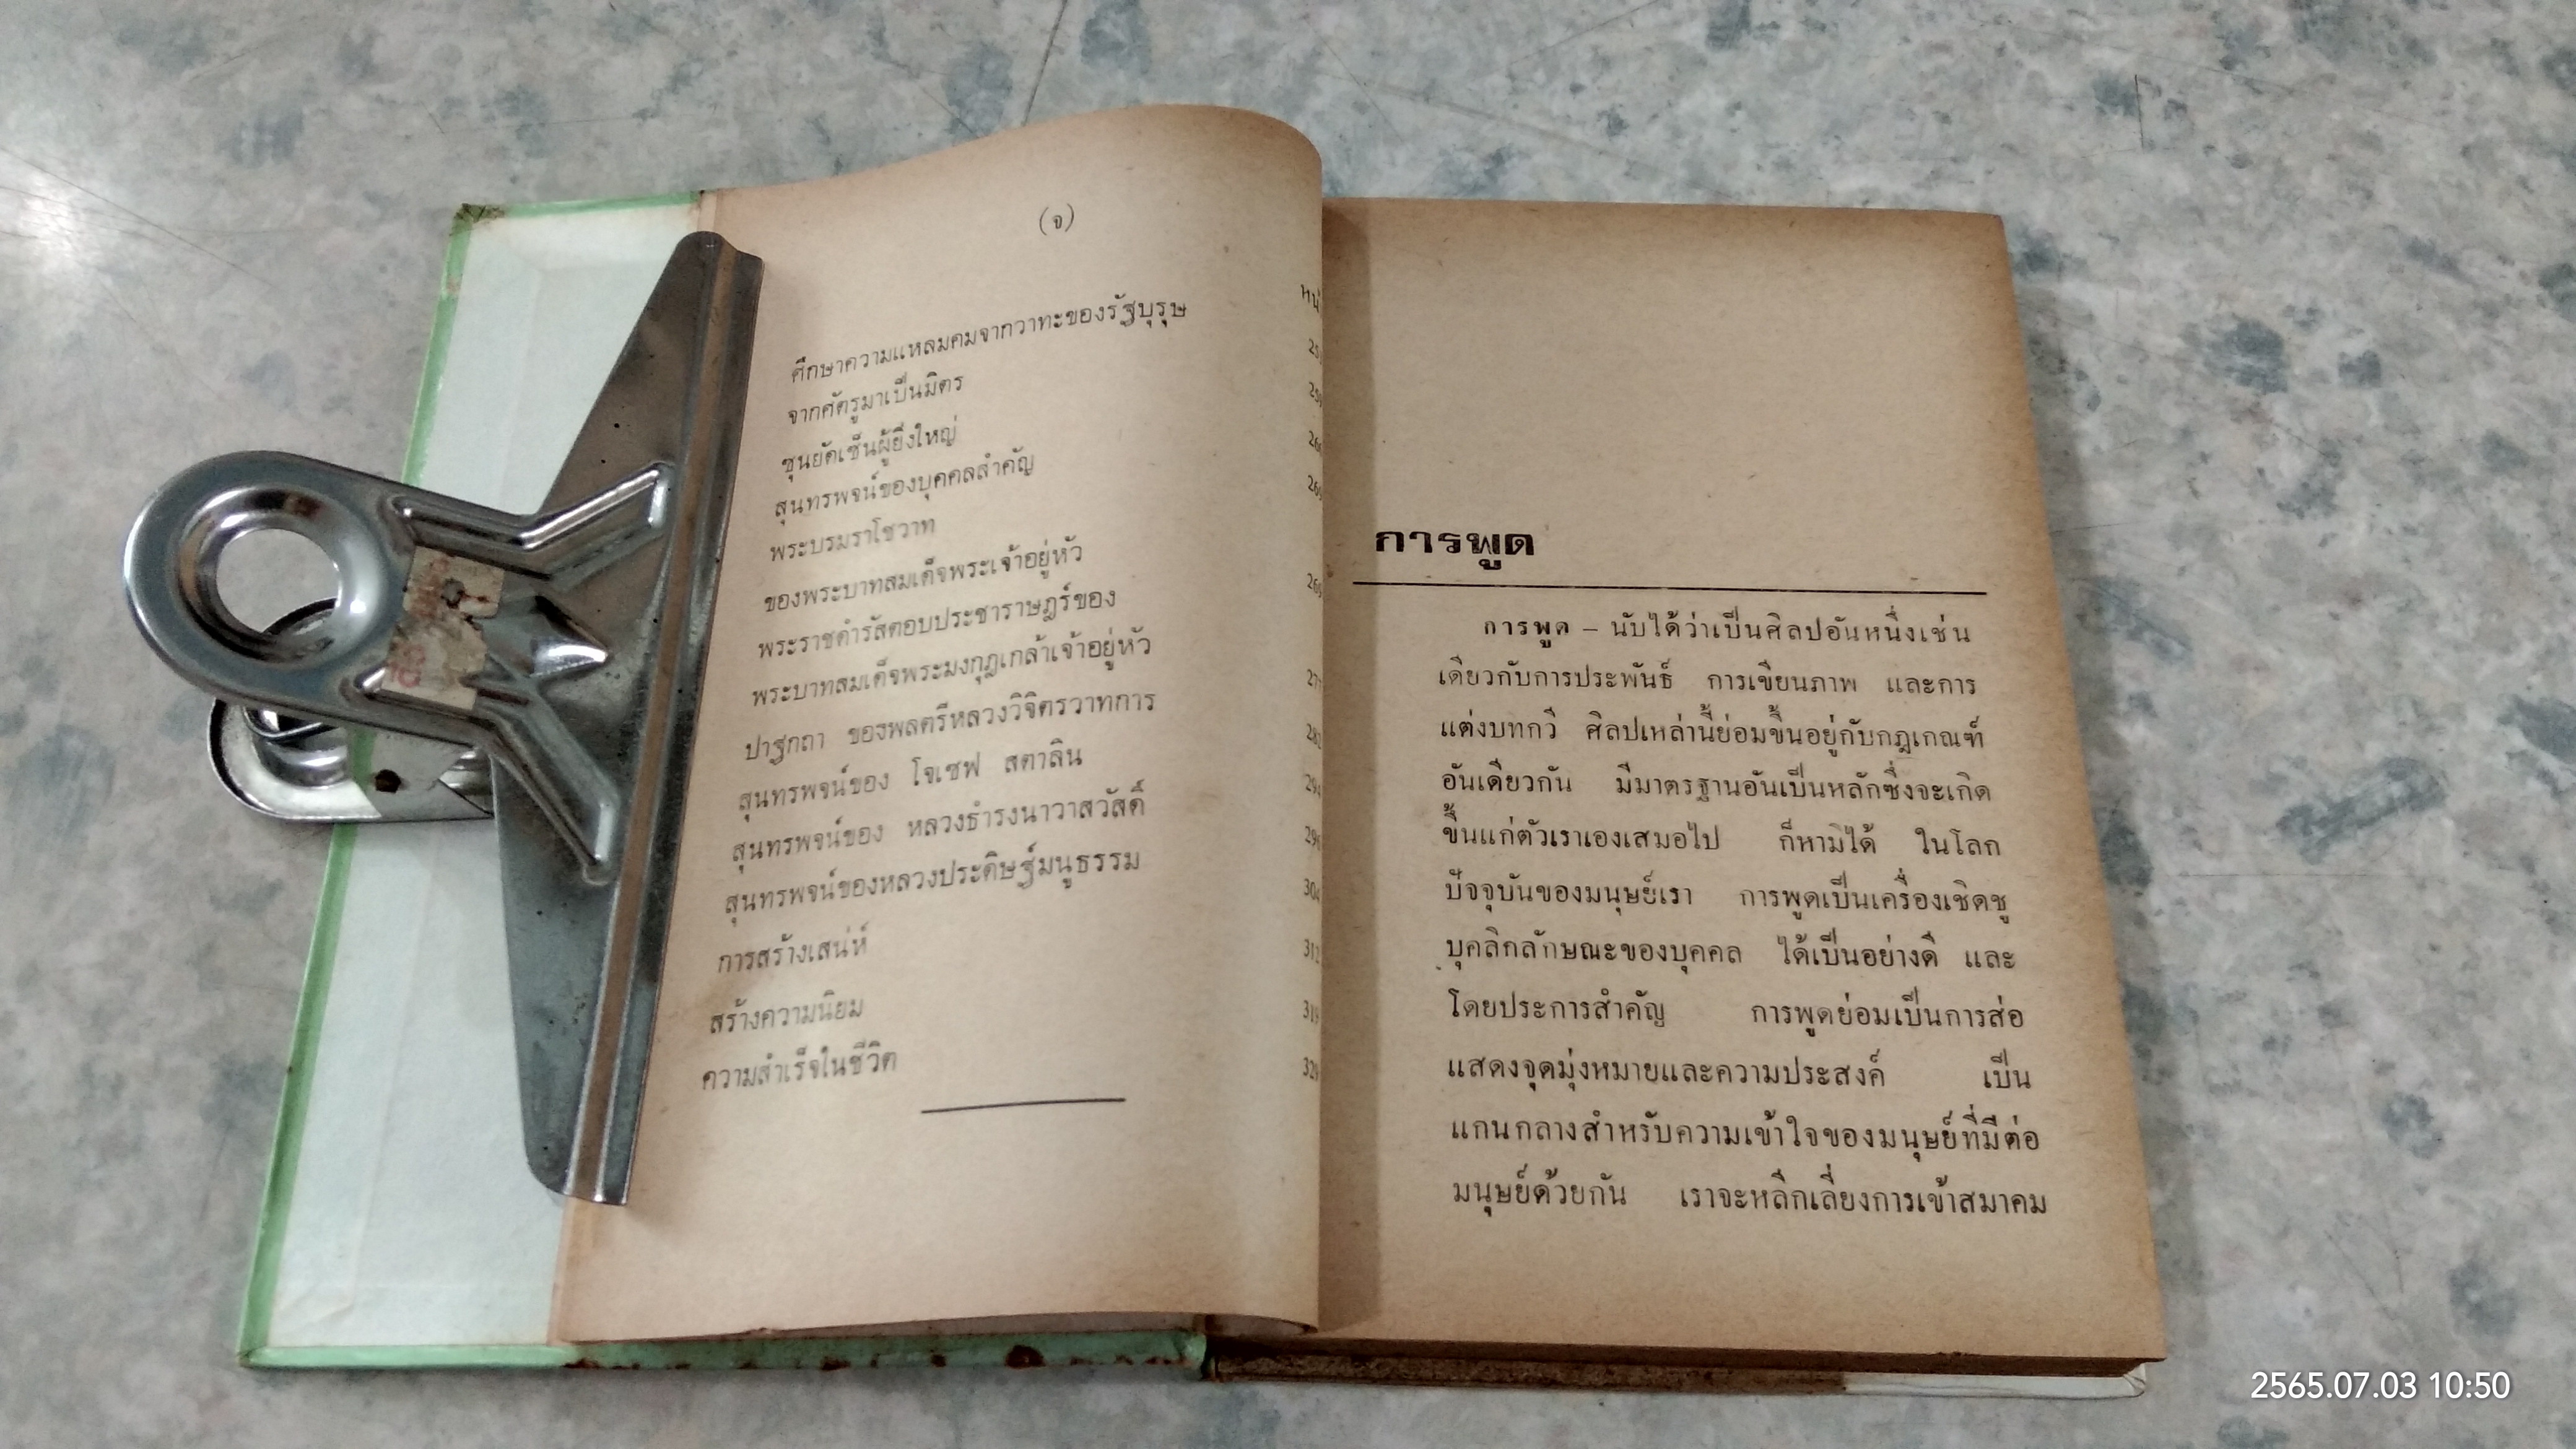 (จ)
ศึกษาความแหลมคมจากวาทะของรัฐบุรุษ
จากศัตรูมาเป็นมิตร
ซุนยัดเซ็นผู้ยิ่งใหญ่
สุนทรพจน์ของบุคคลสำคัญ
พระบรมราโชวาท
ของพระบาทสมเด็จพระเจ้าอยู่หัว
พระราชดำรัสตอบประชาราษฎร์ของ
พระบาทสมเด็จพระมงกุฎเกล้าเจ้าอยู่หัว
ปาฐกถา ของพลตรีหลวงวิจิตรวาทการ
สุนทรพจน์ของ โจเซฟ สตาลิน
สุนทรพจน์ของ หลวงธำรงนาวาสวัสดิ์
สุนทรพจน์ของหลวงประดิษฐ์มนูธรรม
การสร้างเสน่ห์
สร้างความนิยม
ความสำเร็จในชีวิต
การพูด
การพูด – นับได้ว่าเป็นศิลปอันหนึ่งเช่น
เดียวกับการประพันธ์ การเขียนภาพ และการ
แต่งบทกวี ศิลปเหล่านี้ย่อมขึ้นอยู่กับกฎเกณฑ์
อันเดียวกัน มีมาตรฐานอันเป็นหลักซึ่งจะเกิด
ขึ้นแก่ตัวเราเองเสมอไป ก็หามิได้ ในโลก
ปัจจุบันของมนุษย์เรา การพูดเป็นเครื่องเชิดชู
บุคลิกลักษณะของบุคคล ได้เป็นอย่างดี และ
โดยประการสำคัญ การพูดย่อมเป็นการส่อ
แสดงจุดมุ่งหมายและความประสงค์ เป็น
แกนกลางสำหรับความเข้าใจของมนุษย์ที่มีต่อ
มนุษย์ด้วยกัน เราจะหลีกเลี่ยงการเข้าสมาคม
2565.07.03 10:50